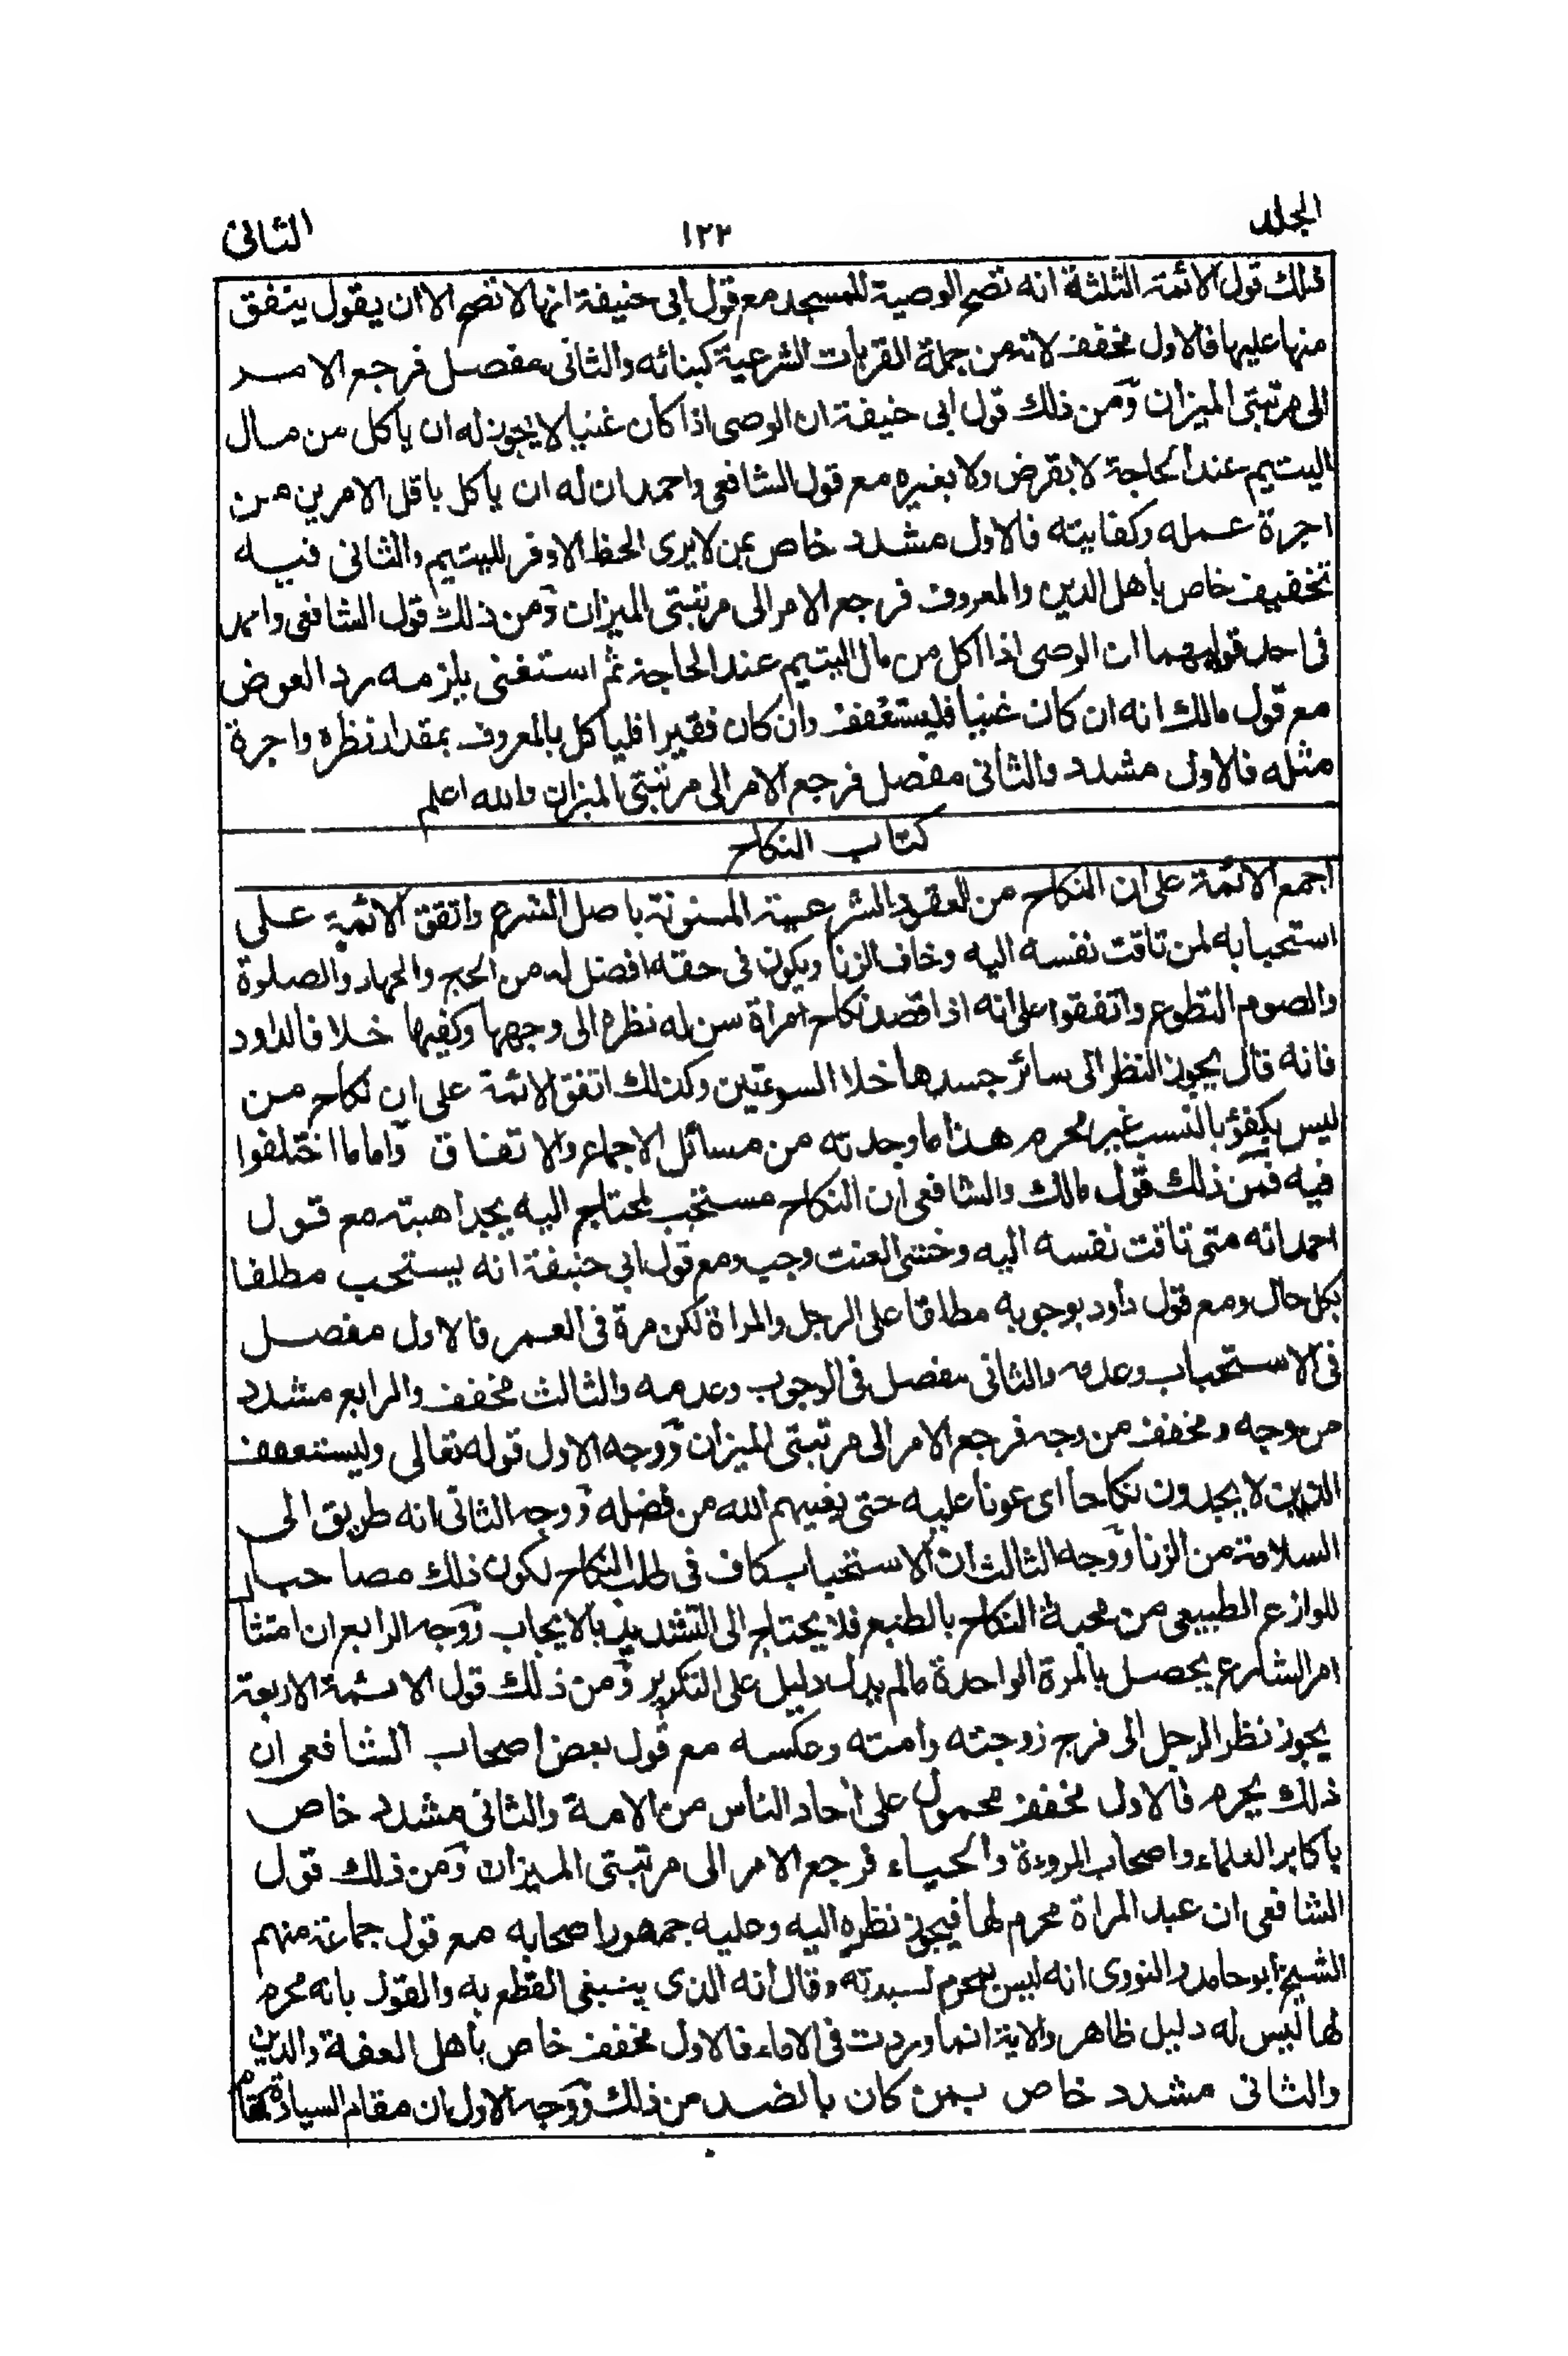 المجلد
١٢٢
الثانى
ذلك قول الائمة الثلثة انه تصح الوصية للمسجد مع قول ابى حنيفة انها لا تصح الا ان يقول ينفق
منها عليها فالاول مخفف لانه من جملة القربات الشرعية كبنائه والثانى مفصل فرجع الامر
الى مرتبتى الميزان ومن ذلك قول ابى حنيفة ان الوصى اذا كان غنيا لا يجوز له ان ياكل من مال
اليتيم عند الحاجة لا بقرض ولا بغيره مع قول الشافعى واحمد ان له ان ياكل باقل الامرين من
اجرة عمله وكفايته فالاول مشدد خاص بمن لا يرى الحظ الاوفر لليتيم والثانى فيه
تخفيف خاص باهل الدين والمعروف فرجع الامر الى مرتبتى الميزان ومن ذلك قول الشافعى واحمد
فى احد قوليهما ان الوصى اذا اكل من مال اليتيم عند الحاجة ثم استغنى يلزمه رد العوض
مع قول مالك انه ان كان غنيا فليستعفف وان كان فقيرا فلياكل بالمعروف بمقدار نظره واجرة
مثله فالاول مشدد والثانى مفصل فرجع الامر الى مرتبتى الميزان والله اعلم
كتاب النكاح
اجمع الائمة على ان النكاح من العقود الشرعية المسنونة باصل الشرع واتفق الائمة على
استحبابه لمن تاقت نفسه اليه وخاف الزنا ويكون فى حقه افضل له من الحج والجهاد والصلوة
والصوم التطوع واتفقوا على انه اذا قصد نكاح امراة سن له نظره الى وجهها وكفيها خلافا لداود
فانه قال يجوز النظر الى سائر جسدها خلا السوءتين وكذلك اتفق الائمة على ان نكاح من
ليس بكفؤ بالنسب غير محرم هذا ما وجدته من مسائل الاجماع والاتفاق واما ما اختلفوا
فيه فمن ذلك قول مالك والشافعى ان النكاح مستحب لمحتاج اليه يجد اهبته مع قول
احمد انه متى تاقت نفسه اليه وخشى العنت وجب ومع قول ابى حنيفة انه يستحب مطلقا
بكل حال ومع قول داود بوجوبه مطلقا على الرجل والمراة لكن مرة فى العمر فالاول مفصل
فى الاستحباب وعدمه والثانى مفصل فى الوجوب وعدمه والثالث مخفف والرابع مشدد
من وجه ومخفف من وجه فرجع الامر الى مرتبتى الميزان ووجه الاول قوله تعالى وليستعفف
الذين لا يجدون نكاحا اى عونا عليه حتى يغنيهم الله من فضله ووجه الثانى انه طريق الى
السلامة من الزنا ووجه الثالث ان الاستحباب كاف فى طلب النكاح لكون ذلك مصاحبا
للوازع الطبيعى من محبة النكاح بالطبع فلا يحتاج الى التشديد بالايجاب ووجه الرابع ان امتثال
امر الشارع يحصل بالمرة الواحدة مالم يدل دليل على التكرير ومن ذلك قول الائمة الاربعة
يجوز نظر الرجل الى فرج زوجته وامته وعكسه مع قول بعض اصحاب الشافعى ان
ذلك يحرم فالاول مخفف محمول على احاد الناس من الامة والثانى مشدد خاص
باكابر العلماء واصحاب المروءة والحياء فرجع الامر الى مرتبتى الميزان ومن ذلك قول
الشافعى ان عبد المراة محرم لها فيجوز نظره اليه وعليه جمهور اصحابه مع قول جماعة منهم
الشيخ ابو حامد والنووى انه ليس بمحرم لسيدته وقال انه الذى ينبغى القطع به والقول بانه محرم
لها ليس له دليل ظاهر والاية انما وردت فى الاماء فالاول مخفف خاص باهل العفة والدين
والثانى مشدد خاص بمن كان بالضد من ذلك ووجه الاول ان مقام السيادة كمقام